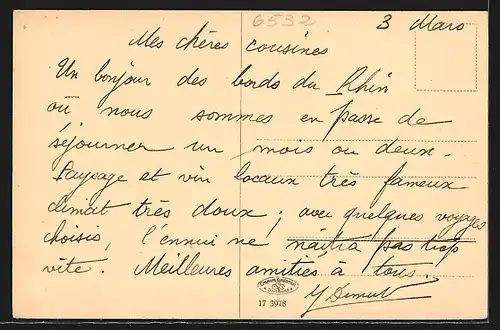 6532
3 Mars
Mes chères cousines
Un bonjour des bords du Rhin
où nous sommes en passe de
séjourner un mois ou deux.
Paysage et vin locaux très fameux
climat très doux ; avec quelques voyages
choisis, l'ennui ne naîtra pas trop
vite. Meilleures amitiés à tous.
17 3978